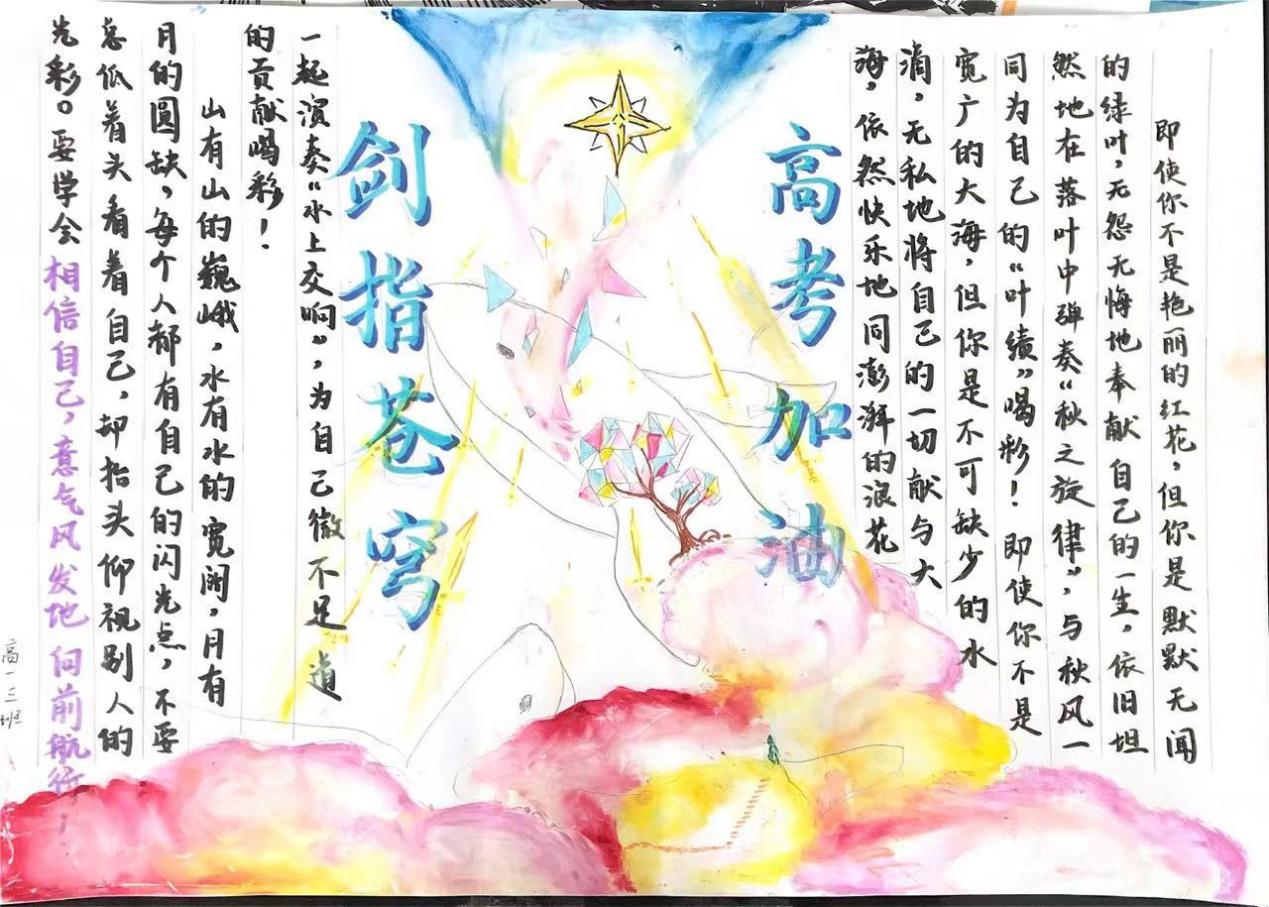 即使你不是艳丽的红花，但你是默默无闻
的绿叶，无怨无悔地奉献自己的一生，依旧坦
然地在落叶中弹奏“秋之旋律”，与秋风一
同为自己的“叶绩”喝彩！即使你不是
宽广的大海，但你是不可缺少的水
滴，无私地将自己的一切献与大
海，依然快乐地同澎湃的浪花
高考加油
剑指苍穹
一起演奏“水上交响”，为自己微不足道
的贡献喝彩！
山有山的巍峨，水有水的宽阔，月有
月的圆缺，每个人都有自己的闪光点，不要
总低着头看着自己，却抬头仰视别人的
光彩。要学会相信自己，意气风发地向前航行；
高一三班